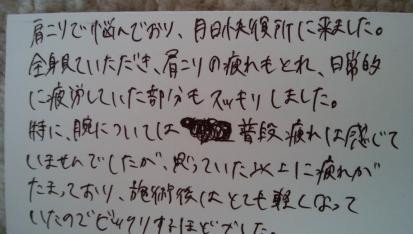 肩こりで悩んでおり、月日快復所に来ました。
全身見ていただき、肩こりの疲れもとれ、日常的
に疲労していた部分もスッキリしました。
特に、腕については 普段疲れは感じて
いませんでしたが、思っていた以上に疲れが
たまっており、施術後はとても軽くなって
いたのでビックリするほどでした。